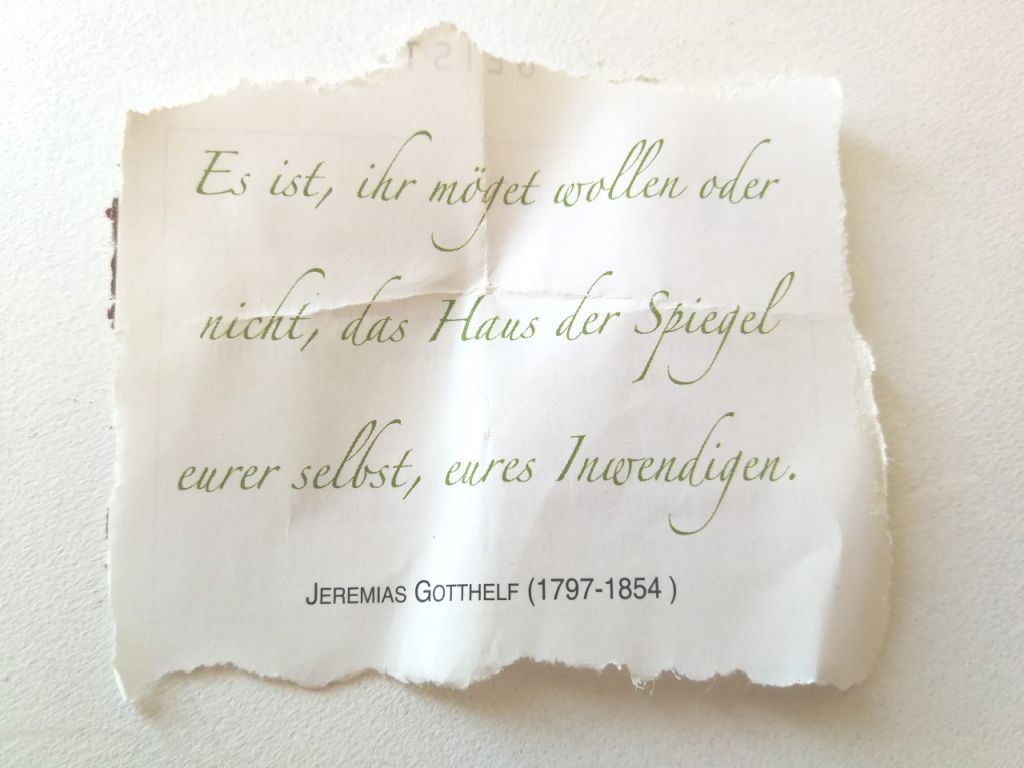 Es ist, ihr möget wollen oder
nicht, das Haus der Spiegel
eurer selbst, eures Inwendigen.
JEREMIAS GOTTHELF (1797-1854 )